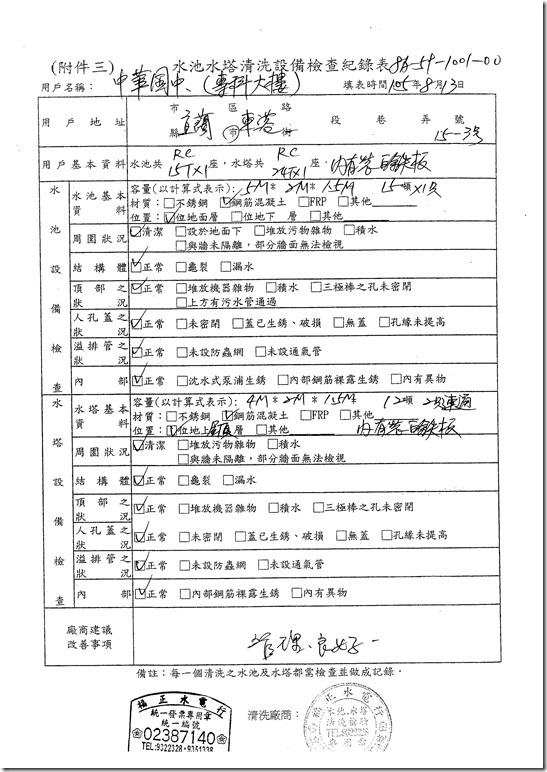 (附件三) 水池水塔清洗設備檢查紀錄表 86-59-1001-00
用戶名稱: 中華國中、(專科大樓) 填表時間 105年8月13日
用戶地址 市縣 宜蘭 區市 東 路街 段 巷 弄 號 15-3號
用戶基本資料 水池共 RC 15T×1 座,水塔共 RC 24T×1 座. 內有裝白鐵板
水池設備檢查
水池基本資料 容量(以計算式表示): 5M * 2M * 1.5M 15噸×1只
材質:□不銹鋼 ☑鋼筋混凝土 □FRP □其他
位置:☑位地面層 □位地下 層 □其他
周圍狀況 ☑清潔 □設於地面下 □堆放污物雜物 □積水
□與牆未隔離,部分牆面無法檢視
結構體 ☑正常 □龜裂 □漏水
頂部之狀況 ☑正常 □堆放機器雜物 □積水 □三極棒之孔未密閉
□上方有污水管通過
人孔蓋之狀況 ☑正常 □未密閉 □蓋已生銹、破損 □無蓋 □孔緣未提高
溢排管之狀況 ☑正常 □未設防蟲網 □未設通氣管
內部 ☑正常 □沈水式泵浦生銹 □內部鋼筋裸露生銹 □內有異物
水塔設備檢查
水塔基本資料 容量(以計算式表示): 4M * 2M * 1.5M 12噸 2只連通
材質:□不銹鋼 ☑鋼筋混凝土 □FRP □其他
位置:☑位地上 頂 層 □其他 內有裝白鐵板
周圍狀況 ☑清潔 □堆放污物雜物 □積水
□與牆未隔離,部分牆面無法檢視
結構體 ☑正常 □龜裂 □漏水
頂部之狀況 ☑正常 □堆放機器雜物 □積水 □三極棒之孔未密閉
人孔蓋之狀況 ☑正常 □未密閉 □蓋已生銹、破損 □無蓋 □孔緣未提高
溢排管之狀況 ☑正常 □未設防蟲網 □未設通氣管
內部 ☑正常 □內部鋼筋裸露生銹 □內有異物
廠商建議改善事項 良好
備註:每一個清洗之水池及水塔都需檢查並做成記錄.
福正水電行
統一發票專用章
統一編號
02387140
TEL:9322328
清洗廠商:
正水電行
水池.水塔
清洗檢驗
專用章
TEL:9322328